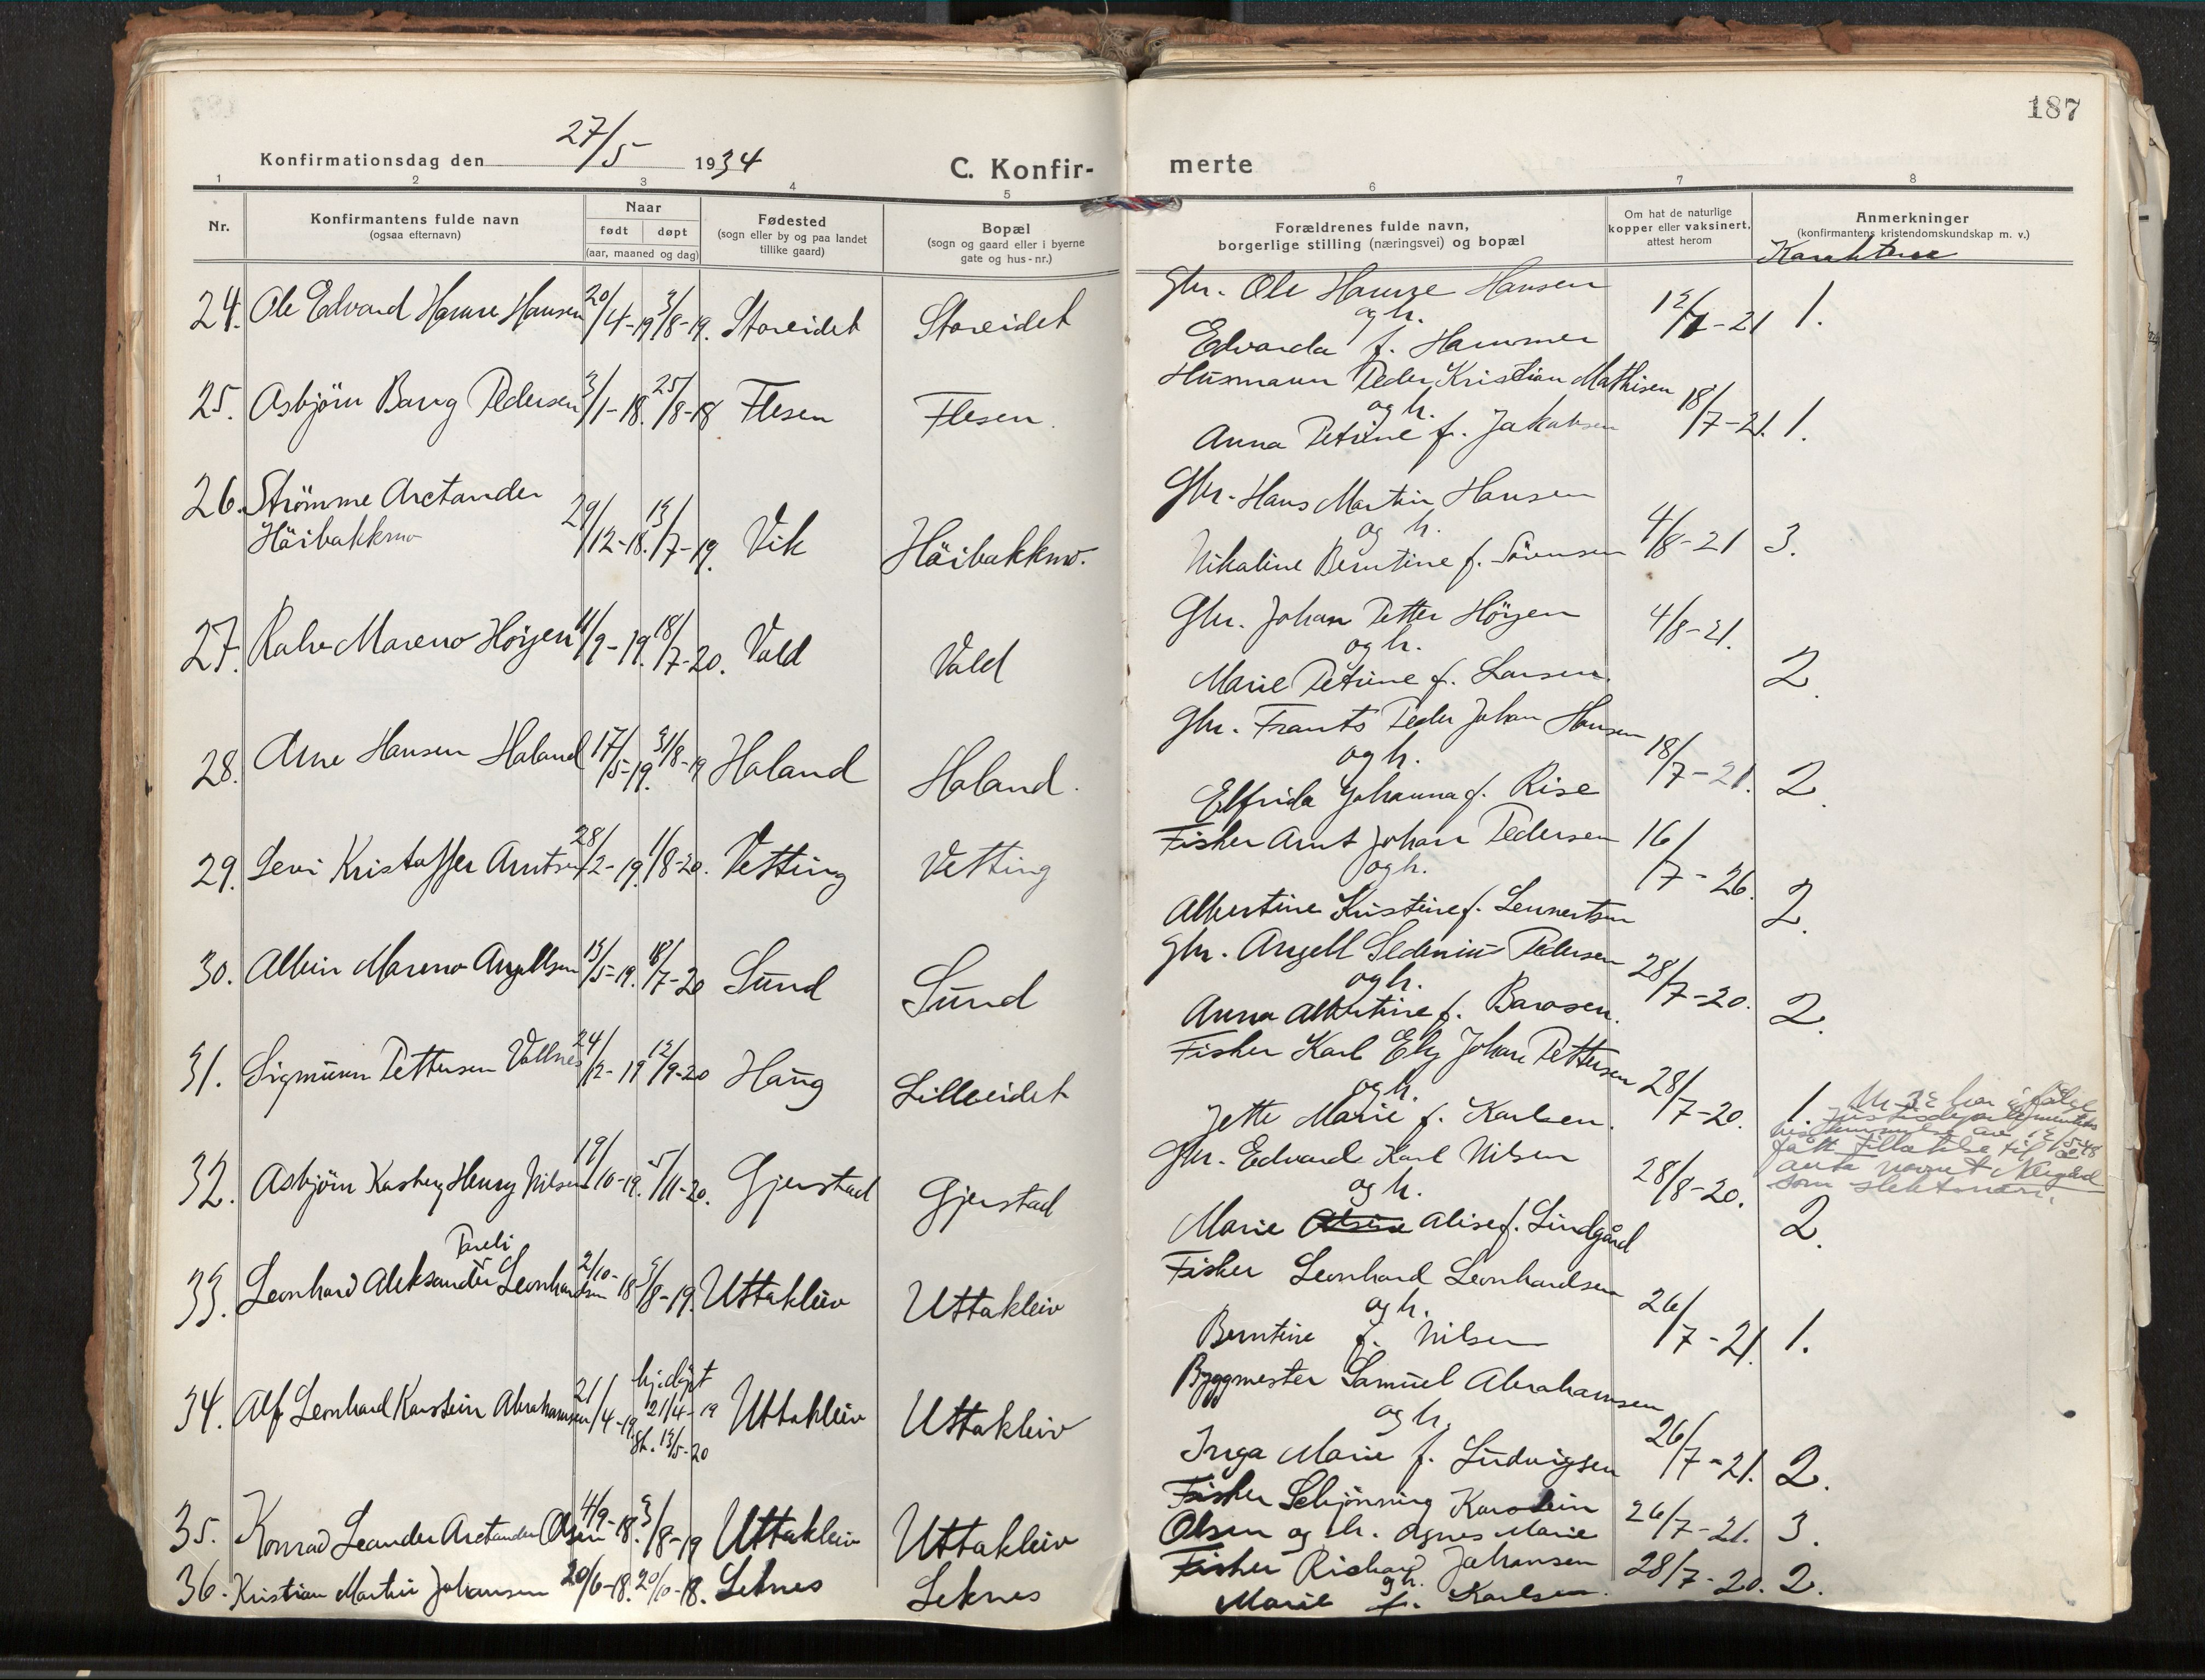 187
27/5
Konfirmationsdag den 1934
C. Konfir-
merte
1 2 3 4 5 6 7 8
Nr.
Konfirmantens fulde navn
(ogsaa efternavn)
Naar
født døpt
(aar, maaned og dag)
Fødested
(sogn eller by og paa landet
tillike gaard)
Bopæl
(sogn og gaard eller i byerne
gate og hus-nr.)
Forældrenes fulde navn,
borgerlige stilling (næringsvei) og bopæl
Om hat de naturlige
kopper eller vaksinert,
attest herom
Anmerkninger
(konfirmantens kristendomskundskap m. v.)
24. Ole Edvard Hansen 20/4-19 3/8-19. Storeidet Storeidet
Gbr. Ole Hansen
og h. 1.
Edvarda f. Hammer
25. Asbjörn Bang Pedersen 3/1-18. 25/8-18 Flesen Flesen.
Husmann Peder Kristian Mathisen
og h. 18/7-21. 1.
Anna Petrine f. Jakobsen
26. Strömme Arctander
Höibakkmo 29/12-18. 13/7-19. Vik Höibakkmo.
Gbr. Hans Martin Hansen
og h. 4/8-21 3.
Nikoline Berntine f. Sörensen
27. Mareno Höyen 18/7-20. Vold Vold
Gbr. Johan Petter Höyen 4/8-21.
og h.
Marie Petrine f. Larsen. 2.
28. Arne Hansen Haland 17/5-19. 31/8-19 Haland Haland.
Gbr. Frants Peder Johan Hansen
og h. 18/7-21. 2.
Elfrida Johanna f. Rise
29. Levi Kristoffer Arntsen 28/2-19. 1/8-20. Vetting Vetting
Fisker Arnt Johan Pedersen 16/7-26.
og h. 2.
Albertine Kristine f. Lennertsen
30. Albin Mareno Angellsen 13/5-19. 18/7-20 Sund Sund
Gbr. Angell Sedenius Pedersen
og h. 28/7-20. 2.
Anna Albertine f. Barosen.
31. Sigmunn Pettersen Vollnes 24/2-19 12/9-20 Haug Lilleeidet
Fisker Karl Ely Johan Pettersen
og h. 28/7-20. 1.
Jette Marie f. Karlsen.
Nr 32 har ifølge
Justisdepartementets
bestemmelse av
fått tillatelse til å
anta navnet
som slektsnavn.
32. Asbjörn Kasberg Henry Nilsen 19/10-19. 5/11-20. Gjerstad Gjerstad
Gbr. Edvard Karl Nilsen
og h. 28/8-20. 2.
Marie Alise f. Lindgård
Pareli
33. Leonhard Aleksander Leonhardsen 2/10-18 3/8-19. Uttakleiv Uttakleiv
Fisker Leonhard Leonhardsen
og h. 26/7-21. 1.
Berntine f. Nilsen
34. Alf Leonhard Karstein Abrahamsen 21/4-19. hj. döpt
21/4-19
St. 13/5-20 Uttakleiv Uttakleiv
Byggmester Samuel Abrahamsen
og h. 26/7-21. 2.
Inga Marie f. Ludvigsen
35. Konrad Leander Arctander Olsen 4/9-18. 3/8-19 Uttakleiv Uttakleiv
Fisker Schjönning Karstein
Olsen og h. Agnes Marie 26/7-21. 3.
36. Kristian Martin Johansen 20/6-18. 20/10-18. Leknes Leknes
Fisker Richard Johansen 28/7-20. 2.
og h.
Marie f. Karlsen.